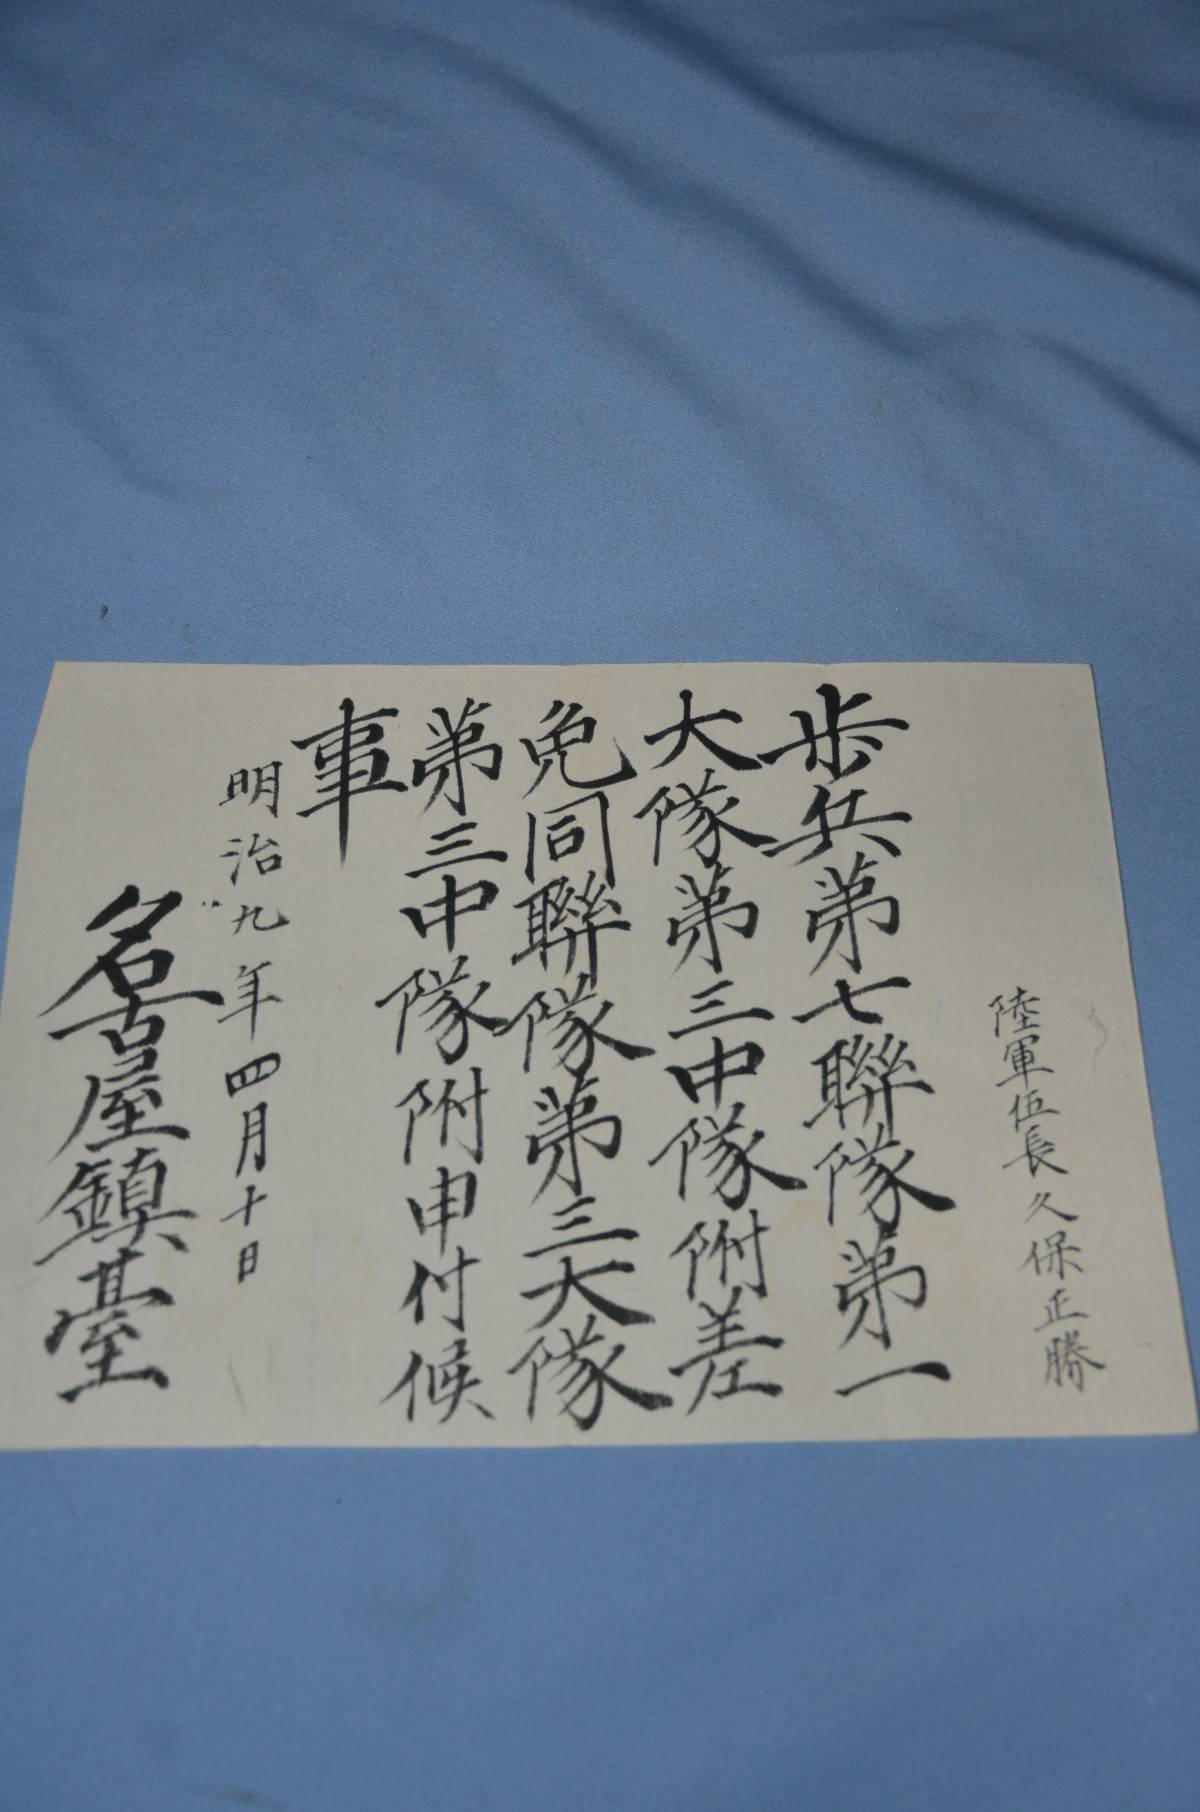 陸軍伍長久保正勝
歩兵第七聯隊第一
大隊第三中隊附差
免同聯隊第三大隊
第三中隊附申付候
事
明治九年四月十日
名古屋鎮臺